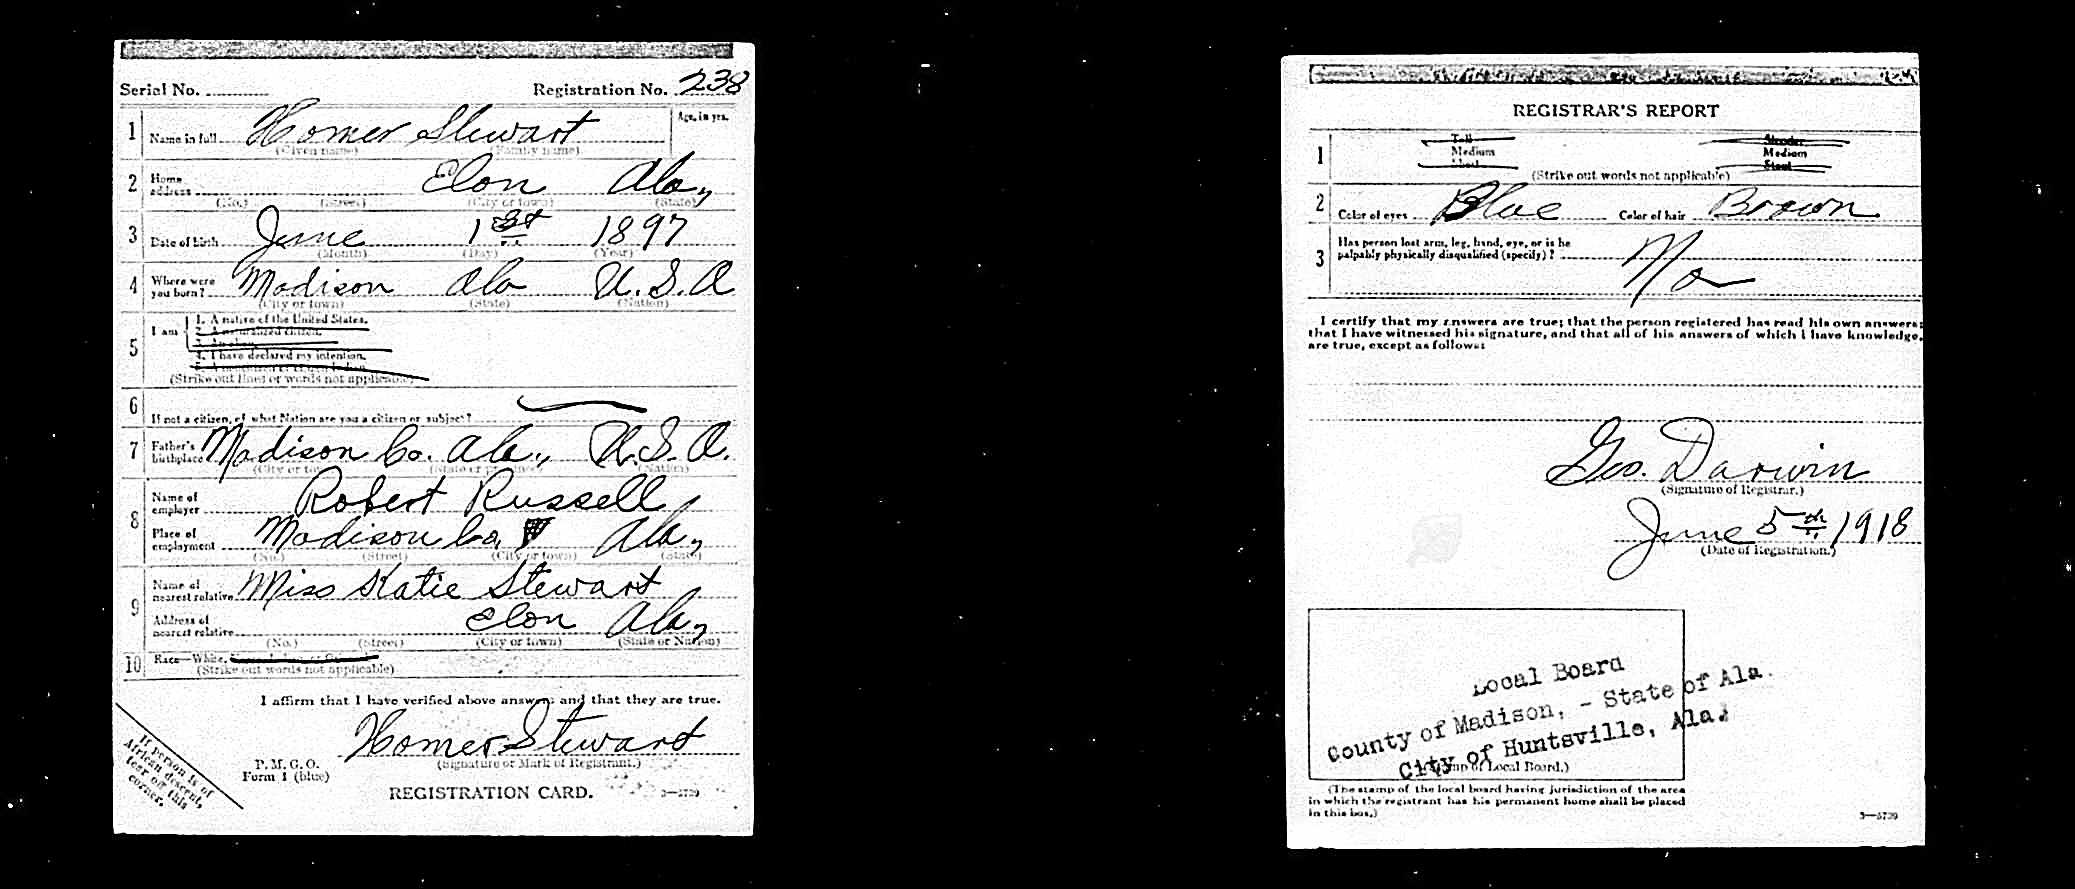 Serial No. Registration No. 238
1 Name in full Homer Stewart Age, in yrs.
(Given name) (Family name)
2 Home address Elon Ala,
(No.) (Street) (City or town) (State)
3 Date of birth June 1st 1897
(Month) (Day) (Year)
4 Where were you born? Madison Ala U.S.A
(City or town) (State) (Nation)
5 I am
1. A native of the United States.
2. A naturalized citizen.
3. An alien.
4. I have declared my intention.
(Strike out lines or words not applicable)
6 If not a citizen, of what Nation are you a citizen or subject?
7 Father's birthplace Madison Co. Ala., U.S.A.
(City or town) (State or province) (Nation)
8 Name of employer Robert Russell
Place of employment Madison Co, Ala,
(No.) (Street) (City or town) (State)
9 Name of nearest relative Miss Katie Stewart
Address of nearest relative Elon Ala,
(No.) (Street) (City or town) (State or Nation)
10 Race—White,
(Strike out words not applicable)
I affirm that I have verified above answers and that they are true.
Homer Stewart
(Signature or Mark of Registrant.)
P. M. G. O.
Form 1 (blue)
REGISTRATION CARD. 3—5739
If person is
African descent,
tear off this
corner.
REGISTRAR'S REPORT
1 Tall Slender
Medium Medium
Short Stout
(Strike out words not applicable)
2 Color of eyes Blue Color of hair Brown
3 Has person lost arm, leg, hand, eye, or is he
palpably physically disqualified (specify)? No
I certify that my answers are true; that the person registered has read his own answers;
that I have witnessed his signature, and that all of his answers of which I have knowledge,
are true, except as follows:
Geo. Darwin
(Signature of Registrar.)
June 5th 1918
(Date of Registration.)
Local Board
County of Madison, - State of Ala.
City of Huntsville, Ala.
(Stamp of Local Board.)
(The stamp of the local board having jurisdiction of the area
in which the registrant has his permanent home shall be placed
in this box.)
3—5739